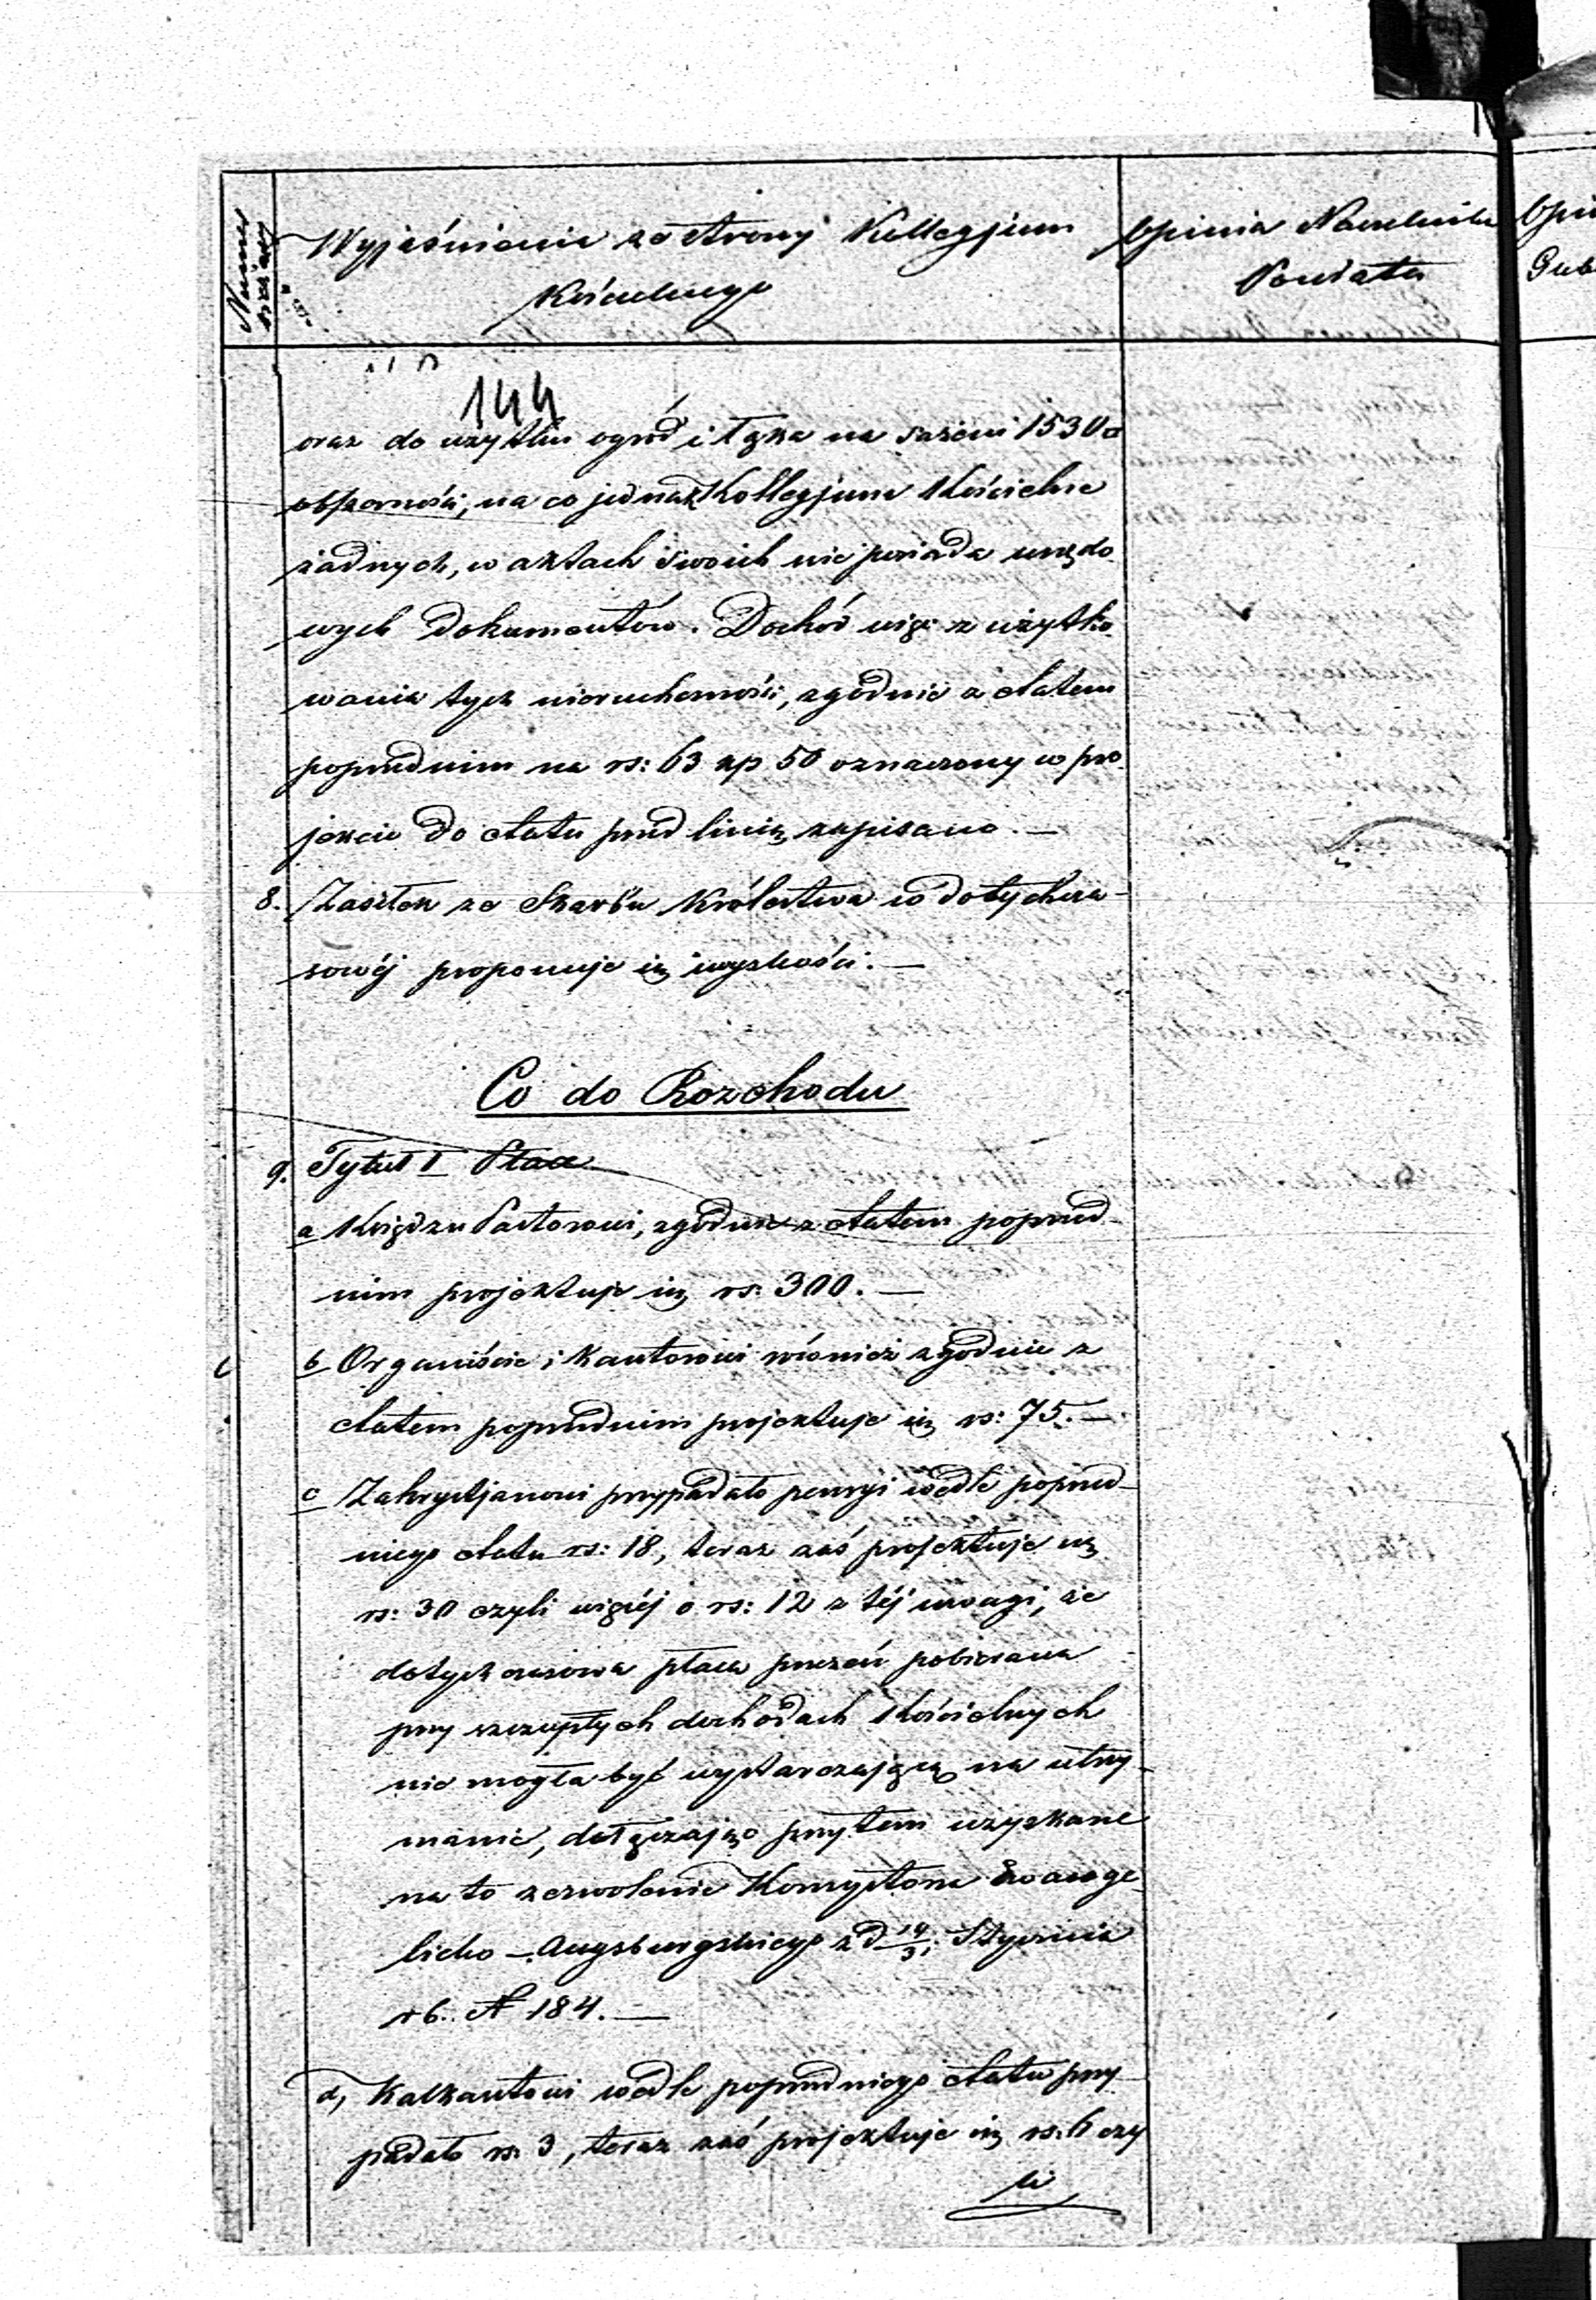 Numer
Wyjaśnienie ze strony Kollegjum
Kościelnego
Opinia Naczelnika
Powiatu
Opin
Gub
144
oraz do użytku ogród i łąka na sążeni 1530 □
obszerności, na co jednak Kollegjum Kościelne
żadnych, w aktach swoich nie posiada urzędo
wych dokumentów. Dochód więc z użytko
wania tych nieruchomości, zgodnie z etatem
poprzednim na rs: 63 kp 50 oznaczony w pro
jekcie do etatu pod linią zapisano. —
8. Zasiłek ze Skarbu Królestwa w dotychcza-
sowéj proponuje się wysokości. —
Co do Rozchodu
9. Tytuł I Płace
a Księdzu Pastorowi, zgodnie z etatem poprzed-
nim projektuje się rs: 300. —
b Organiście i Kantorowi również zgodnie z
etatem poprzednim projektuje się rs: 75. —
c Zakrystjanowi przypadało pensyi wedle poprzed-
niego etatu rs: 18, teraz zaś projektuje się
rs: 30 czyli więcéj o rs: 12 z téj uwagi, że
dotychczasowa płaca przezeń pobierana
przy szczupłych dochodach Kościelnych
nie mogła być wystarczającą na utrzy-
manie, dołączając przytem uzyskane
na to zezwolenie Konsystorza Ewange
licko-Augsburgskiego z d Stycznia
rb. N 184. —
d, Kalkantowi wedle poprzedniego etatu przy
padało rs. 3, teraz zaś projektuje się rs. 6 czy
li